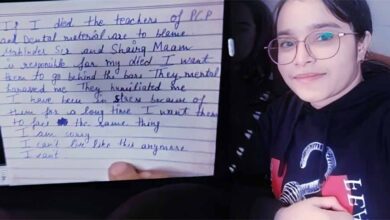 If I died the teachers of PCP
and Dental material are to blame.
Mahinder Sir and Shairg Maam
is responsible for my died I want
them to go behind the bars They mental
harassed me They humiliated me
I have been in stress because of
them for a long time I want them
to face the same thing
I am sorry
I can't live like this anymore
I cant